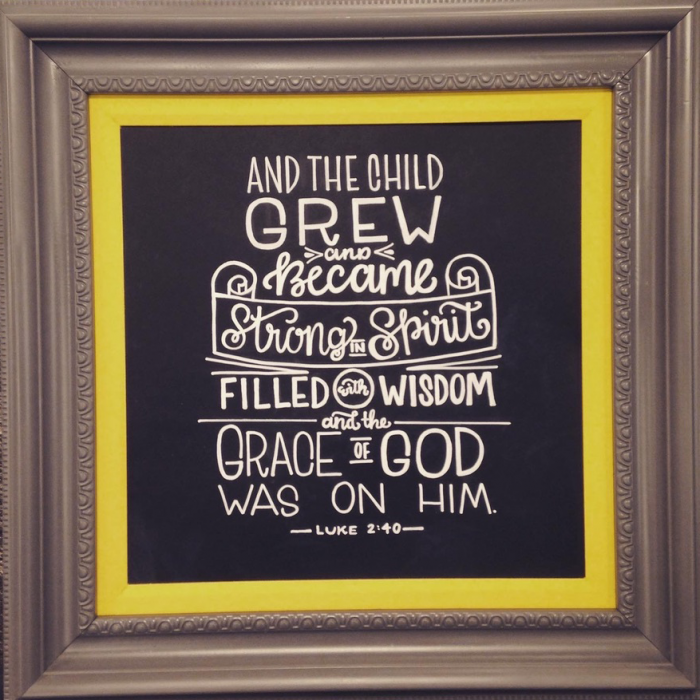 AND THE CHILD
GREW
and
Became
Strong IN Spirit
FILLED with WISDOM
and the
GRACE OF GOD
WAS ON HIM.
— LUKE 2:40 —